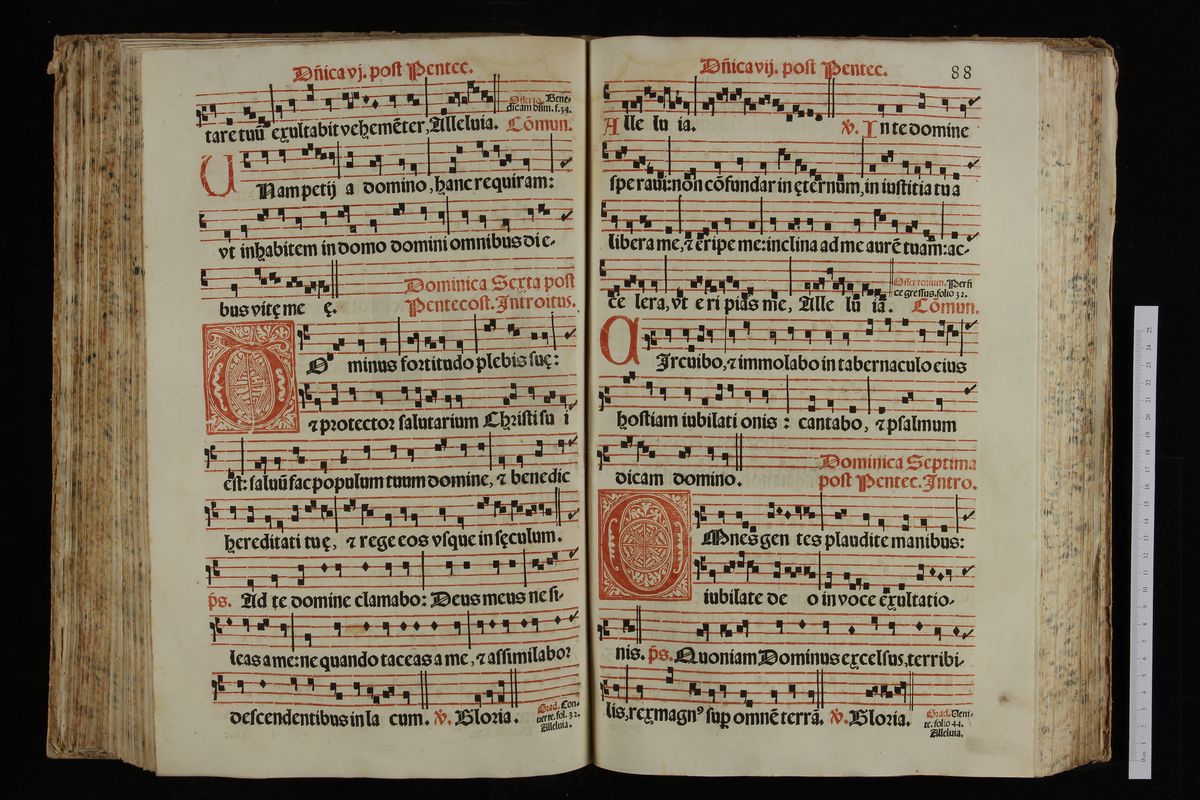 Dñica vj. post Pentec.
tare tuũ exultabit vehemẽter, Alleluia. Cõmun.
Offerto. Bene-
dicam dñm. f.34.
UNam petij a domino, hanc requiram:
vt inhabitem in domo domini omnibus die-
bus vitę me ę. Dominica Sexta post
Pentecost. Introitus.
DO minus fortitudo plebis suę:
⁊ protector salutarium Christi su i
est: saluũ fac populum tuum domine, ⁊ benedic
hereditati tuę, ⁊ rege eos vsque in sęculum.
p̃s. Ad te domine clamabo: Deus meus ne si-
leas a me: ne quando taceas a me, ⁊ assimilabor
descendentibus in la cum. ℣. Gloria.
Grad. Con-
uerte. fol. 32.
Alleluia.
Dñica vij. post Pentec. 88
Alle lu ia. ℣. In te domine
spe raui: non cõfundar in ęternum, in iustitia tu a
libera me, ⁊ eripe me: inclina ad me aurẽ tuam: ac-
ce lera, vt e ri pias me, Alle lu ia. Cõmun.
Offertorium. Perfi
ce gressus. folio 32.
CIrcuibo, ⁊ immolabo in tabernaculo eius
hostiam iubilati onis: cantabo, ⁊ psalmum
dicam domino. Dominica Septima
post Pentec. Intro.
OMnes gen tes plaudite manibus:
iubilate de o in voce exultatio-
nis. p̃s. Quoniam Dominus excelsus, terribi-
lis, rex magnꝰ sup̱ omnẽ terrã. ℣. Gloria.
Grad. Veni-
te. folio 44.
Alleluia.